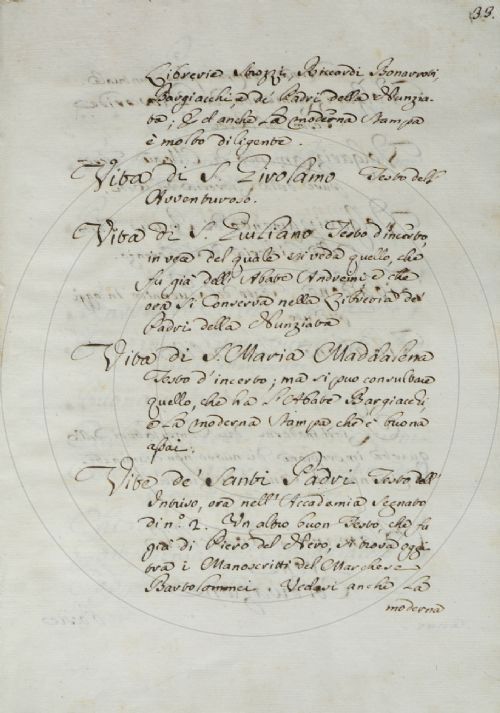 33.
Librerie Strozzi, Riccardi, Bonarroti,
Bargiacchi, e de' Padri della Nunzia-
ta; ed anche la moderna Stampa
è molto diligente.
Vita di S. Girolamo Testo dell'
Avventuroso.
Vita di S. Giuliano Testo d'incerto,
in vece del quale si veda quello, che
fu già dell'Abate Andreini e che
ora si conserva nella Libreria de'
Padri della Nunziata
Vita di S. Maria Maddalena
Testo d'incerto; ma si può consultare
quello, che ha l'Abate Bargiacchi,
e la moderna Stampa, che è buona
assai.
Vite de' Santi Padri Testo dell'
Intriso, ora nell'Accademia Segnato
di n.º 2. Un altro buon Testo, che fu
già di Piero del Nero, si trova oggi
tra i Manoscritti del Marchese
Bartolommei. Vedasi anche la
moderna